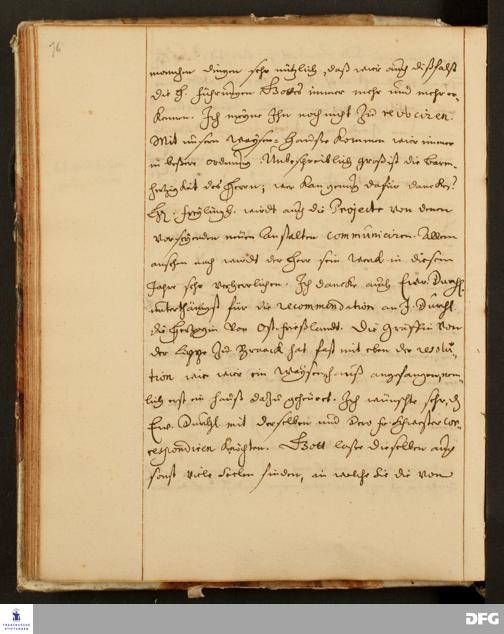 76
manchen dingen sehr nützlich, daß wir auch dißfalß
die h. führungen Gottes immer mehr und mehr er-
kennen. Ich meyne Ihn noch nicht zu revociren.
Mit unsern Waysen-hause kommen wir immer
in beßere ordnung. Unbeschreiblich groß ist die barm-
herzigkeit des Herrn; wer kan genug dafür dancken?
H. Freylingh. wirdt auch die Projecte von denen
vorseyenden neuen Anstalten communiciren. Allem
ansehen nach wirdt der Herr sein werck in diesem
Jahre sehr verherrlichen. Ich dancke auch Ewr. Durchl.
unterthänigst für die recommendation an J. Durchl.
die Herzogin von Ost-frießlandt. Die Gräffin von
der Lippe zu Braack hat fast mit eben der resolu-
tion wie wir ein Waysenhauß angefangen, nem-
lich erst ein hauß dazu geheuret. Ich wünschte sehr, dz
Ewr. Durchl. mit derselben und dero fr. Schwester cor-
respondiren möchten. Gott laße dieselben auch
sonst viele Seelen finden, an welche sie die von
FRANCKESCHE STIFTUNGEN
DFG